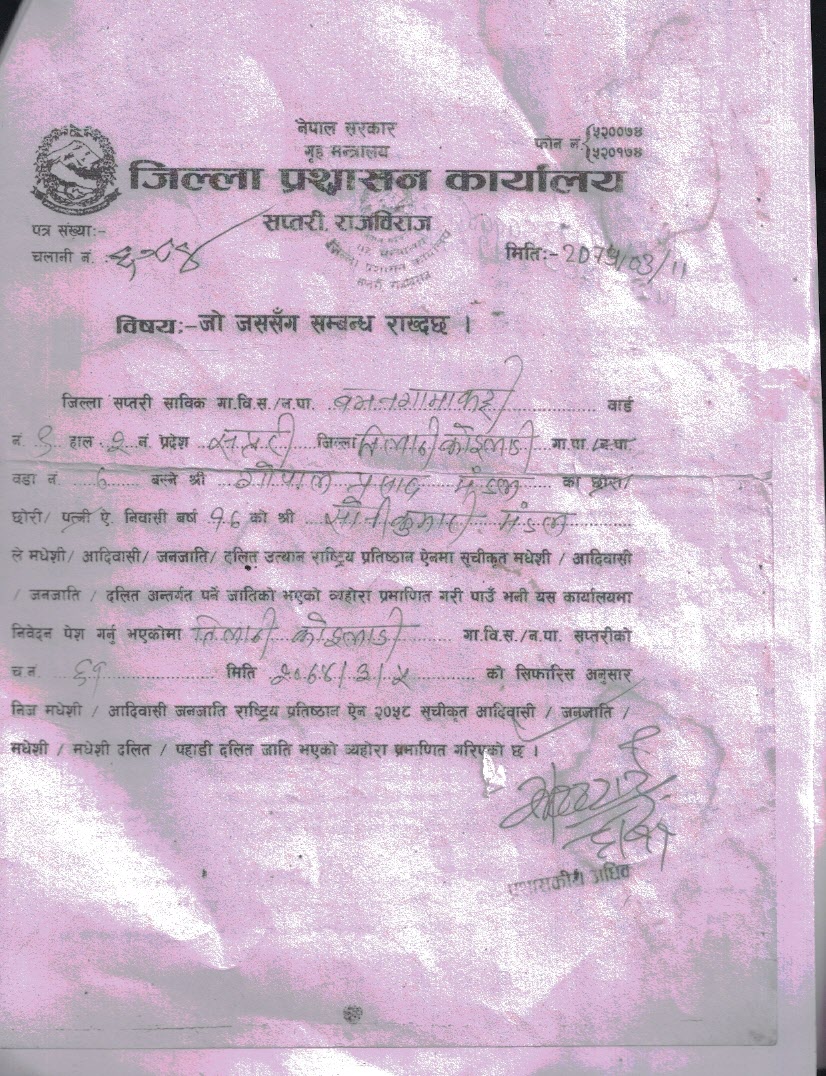 नेपाल सरकार
गृह मन्त्रालय
फोन नं. ५२००७४
५२०१७४
जिल्ला प्रशासन कार्यालय
सप्तरी, राजविराज
पत्र संख्याः-
चलानी नं.
मितिः- 2075/03/11
विषयः-जो जससँग सम्बन्ध राख्दछ ।
जिल्ला सप्तरी साविक गा.वि.स./न.पा. बमनगामाकट्टी वार्ड
नं. ९ हाल २ नं. प्रदेश सप्तरी जिल्ला तिलाठी कोइलाडी गा.पा./न.पा.
वडा नं. ६ बस्ने श्री गोपाल प्रसाद मंडल का छोरा/
छोरी/ पत्नी ऐ. निवासी बर्ष १६ को श्री कुमारी मंडल
ले मधेशी/ आदिवासी/ जनजाति/ दलित उत्थान राष्ट्रिय प्रतिष्ठान ऐनमा सूचीकृत मधेशी / आदिवासी
/ जनजाति / दलित अन्तर्गत पर्ने जातिको भएको व्यहोरा प्रमाणित गरी पाउँ भनी यस कार्यालयमा
निवेदन पेश गर्नु भएकोमा तिलाठी कोइलाडी गा.वि.स./न.पा. सप्तरीको
च.न. ६१ मिति को सिफारिस अनुसार
निज मधेशी / आदिवासी जनजाति राष्ट्रिय प्रतिष्ठान ऐन २०५८ सूचीकृत आदिवासी / जनजाति /
मधेशी / मधेशी दलित / पहाडी दलित जाति भएको व्यहोरा प्रमाणित गरिएको छ ।